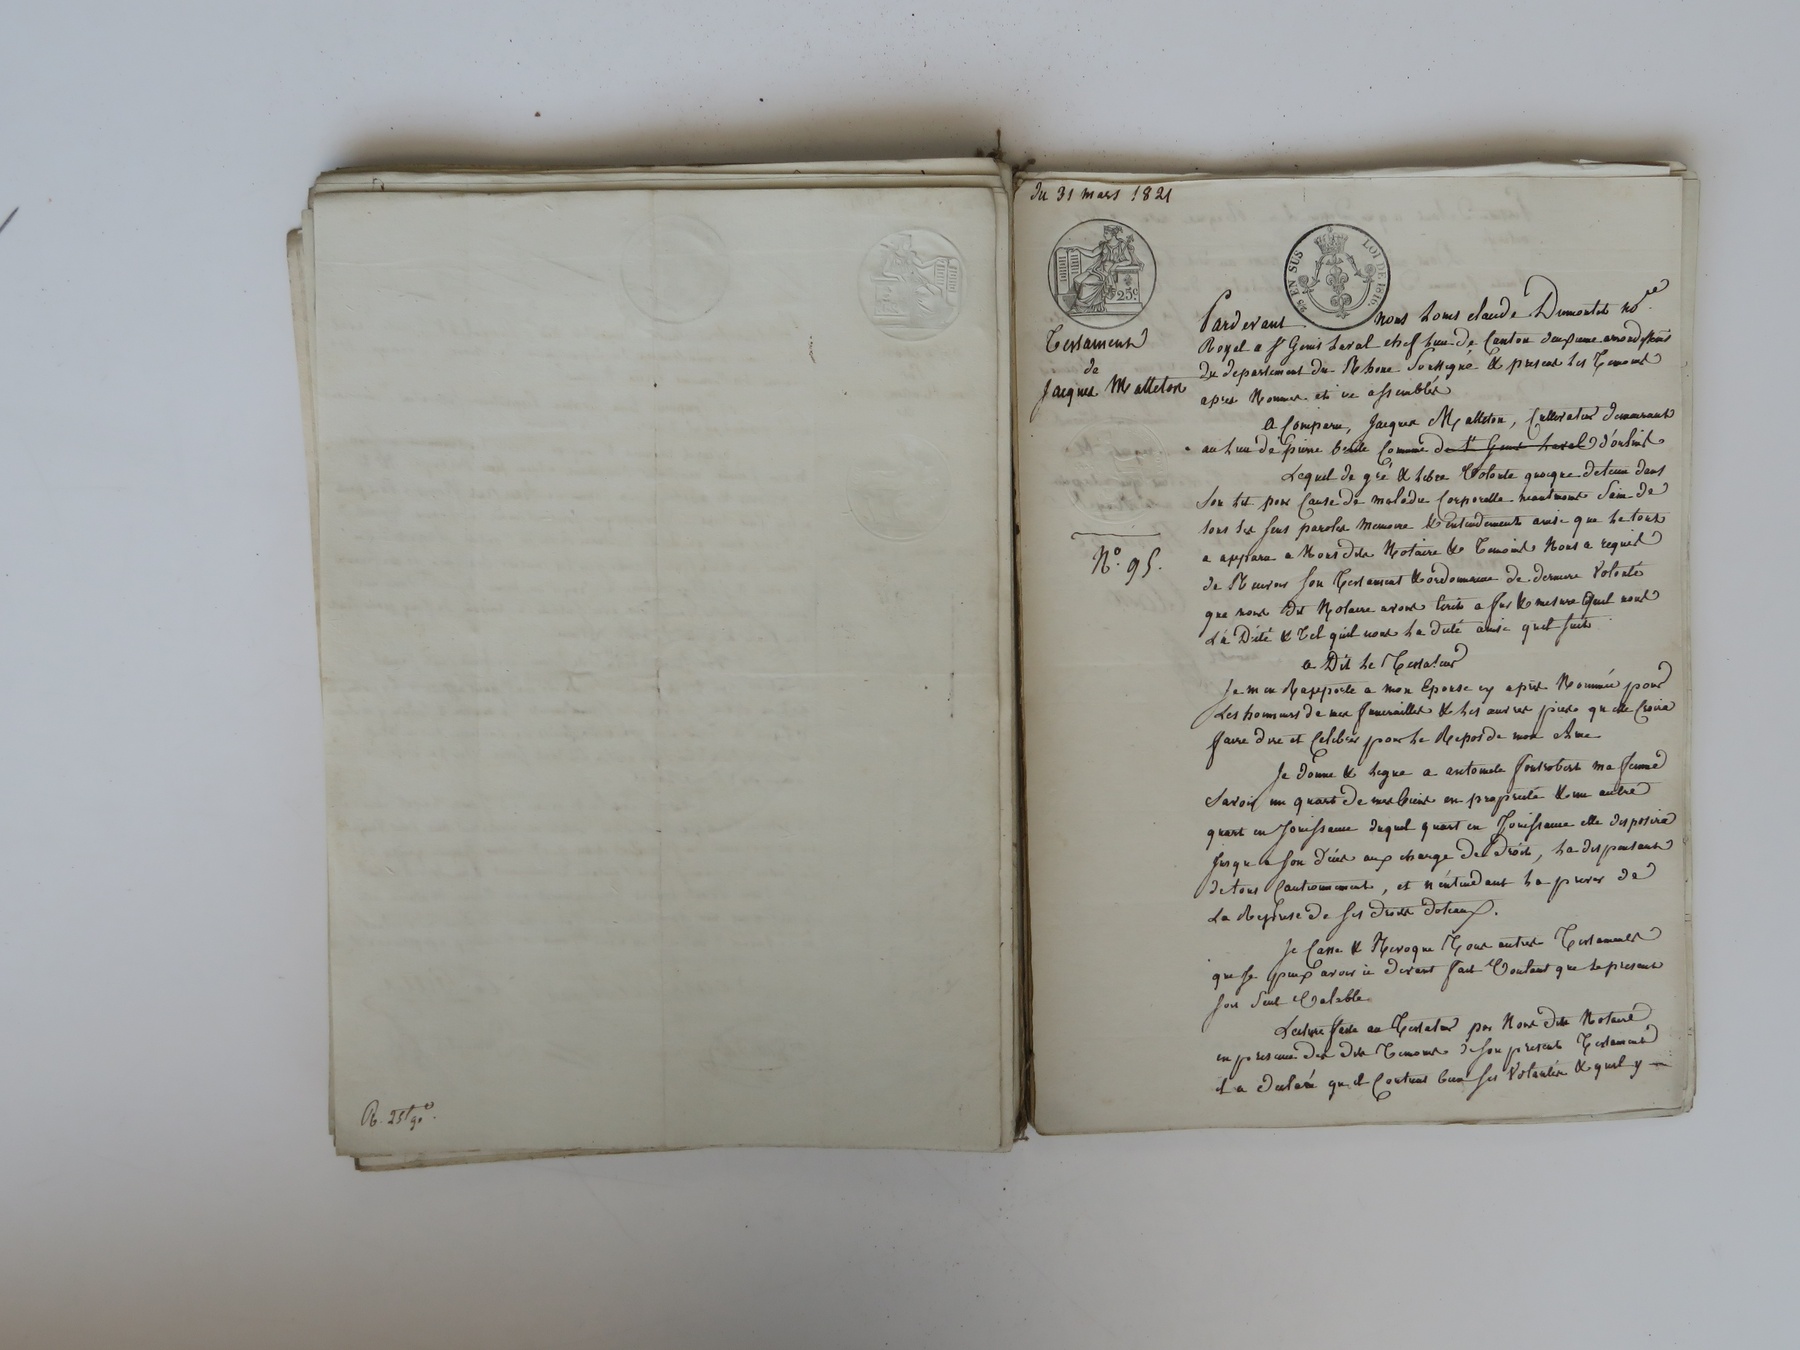 R. 2f 90c.
du 31 mars 1821
25c
25 EN SUS LOI DE 1816.
Testament
de
Jacques Matteton
N.o 95.
Pardevant nous Louis claude Dumontet no.re
Royal a St Genis Laval chef Lieu de Canton deuxieme arrondissemt
du departement du Rhone Soussigné & present les Temoins
apres Nommes et ici assemblés
a Comparu, Jacques Matteton, Cultivateur demeurant
au Lieu de pierre benite Commune de St Genis Laval d'oulins
Lequel de gré & Libre Volonté quoique detenu dans
Son Lit pour Cause de maladie Corporelle neantmoins Sain de
tous ses sens paroles memoire & Entendement ainsi que le tout
a apparu a Nous dits Notaire & Temoins Nous a requis
de Recevoir Son Testament & ordonnance de derniere Volonté
que nous dit Notaire avons Ecrits a fur & mesure quil nous
La Dicté & Tel qu'il nous La dicté ainsi quil suit
a Dit Le Testateur
Je men Rapporte a mon Epouse cy après Nommée pour
Les honneurs de mes funerailles & Les œuvres pies qu'elle Croira
faire dire et Celebrer pour Le Repos de mon Ame
Je donne & Legue a antoinete fontrobert ma femme
Savoir un quart de mes biens en proprieté & un autre
quart en Jouissance duquel quart en Jouissance elle disposera
Jusqu'a son déces aux charge de Droit, La dispensant
de tous Cautionnement, et n'entendant La priver de
La Reprise de Ses droits doteaux.
Je Casse & Revoque Tous autres Testaments
que Je peux avoir ci devant fait Voulant que Le present
soit Seul Valable
Lecture faite au Testateur par Nous dits Notaire
en presence des dits Temoins de son present Testament
il a declaré qu'il Contient bien ses Volontés & quil y —